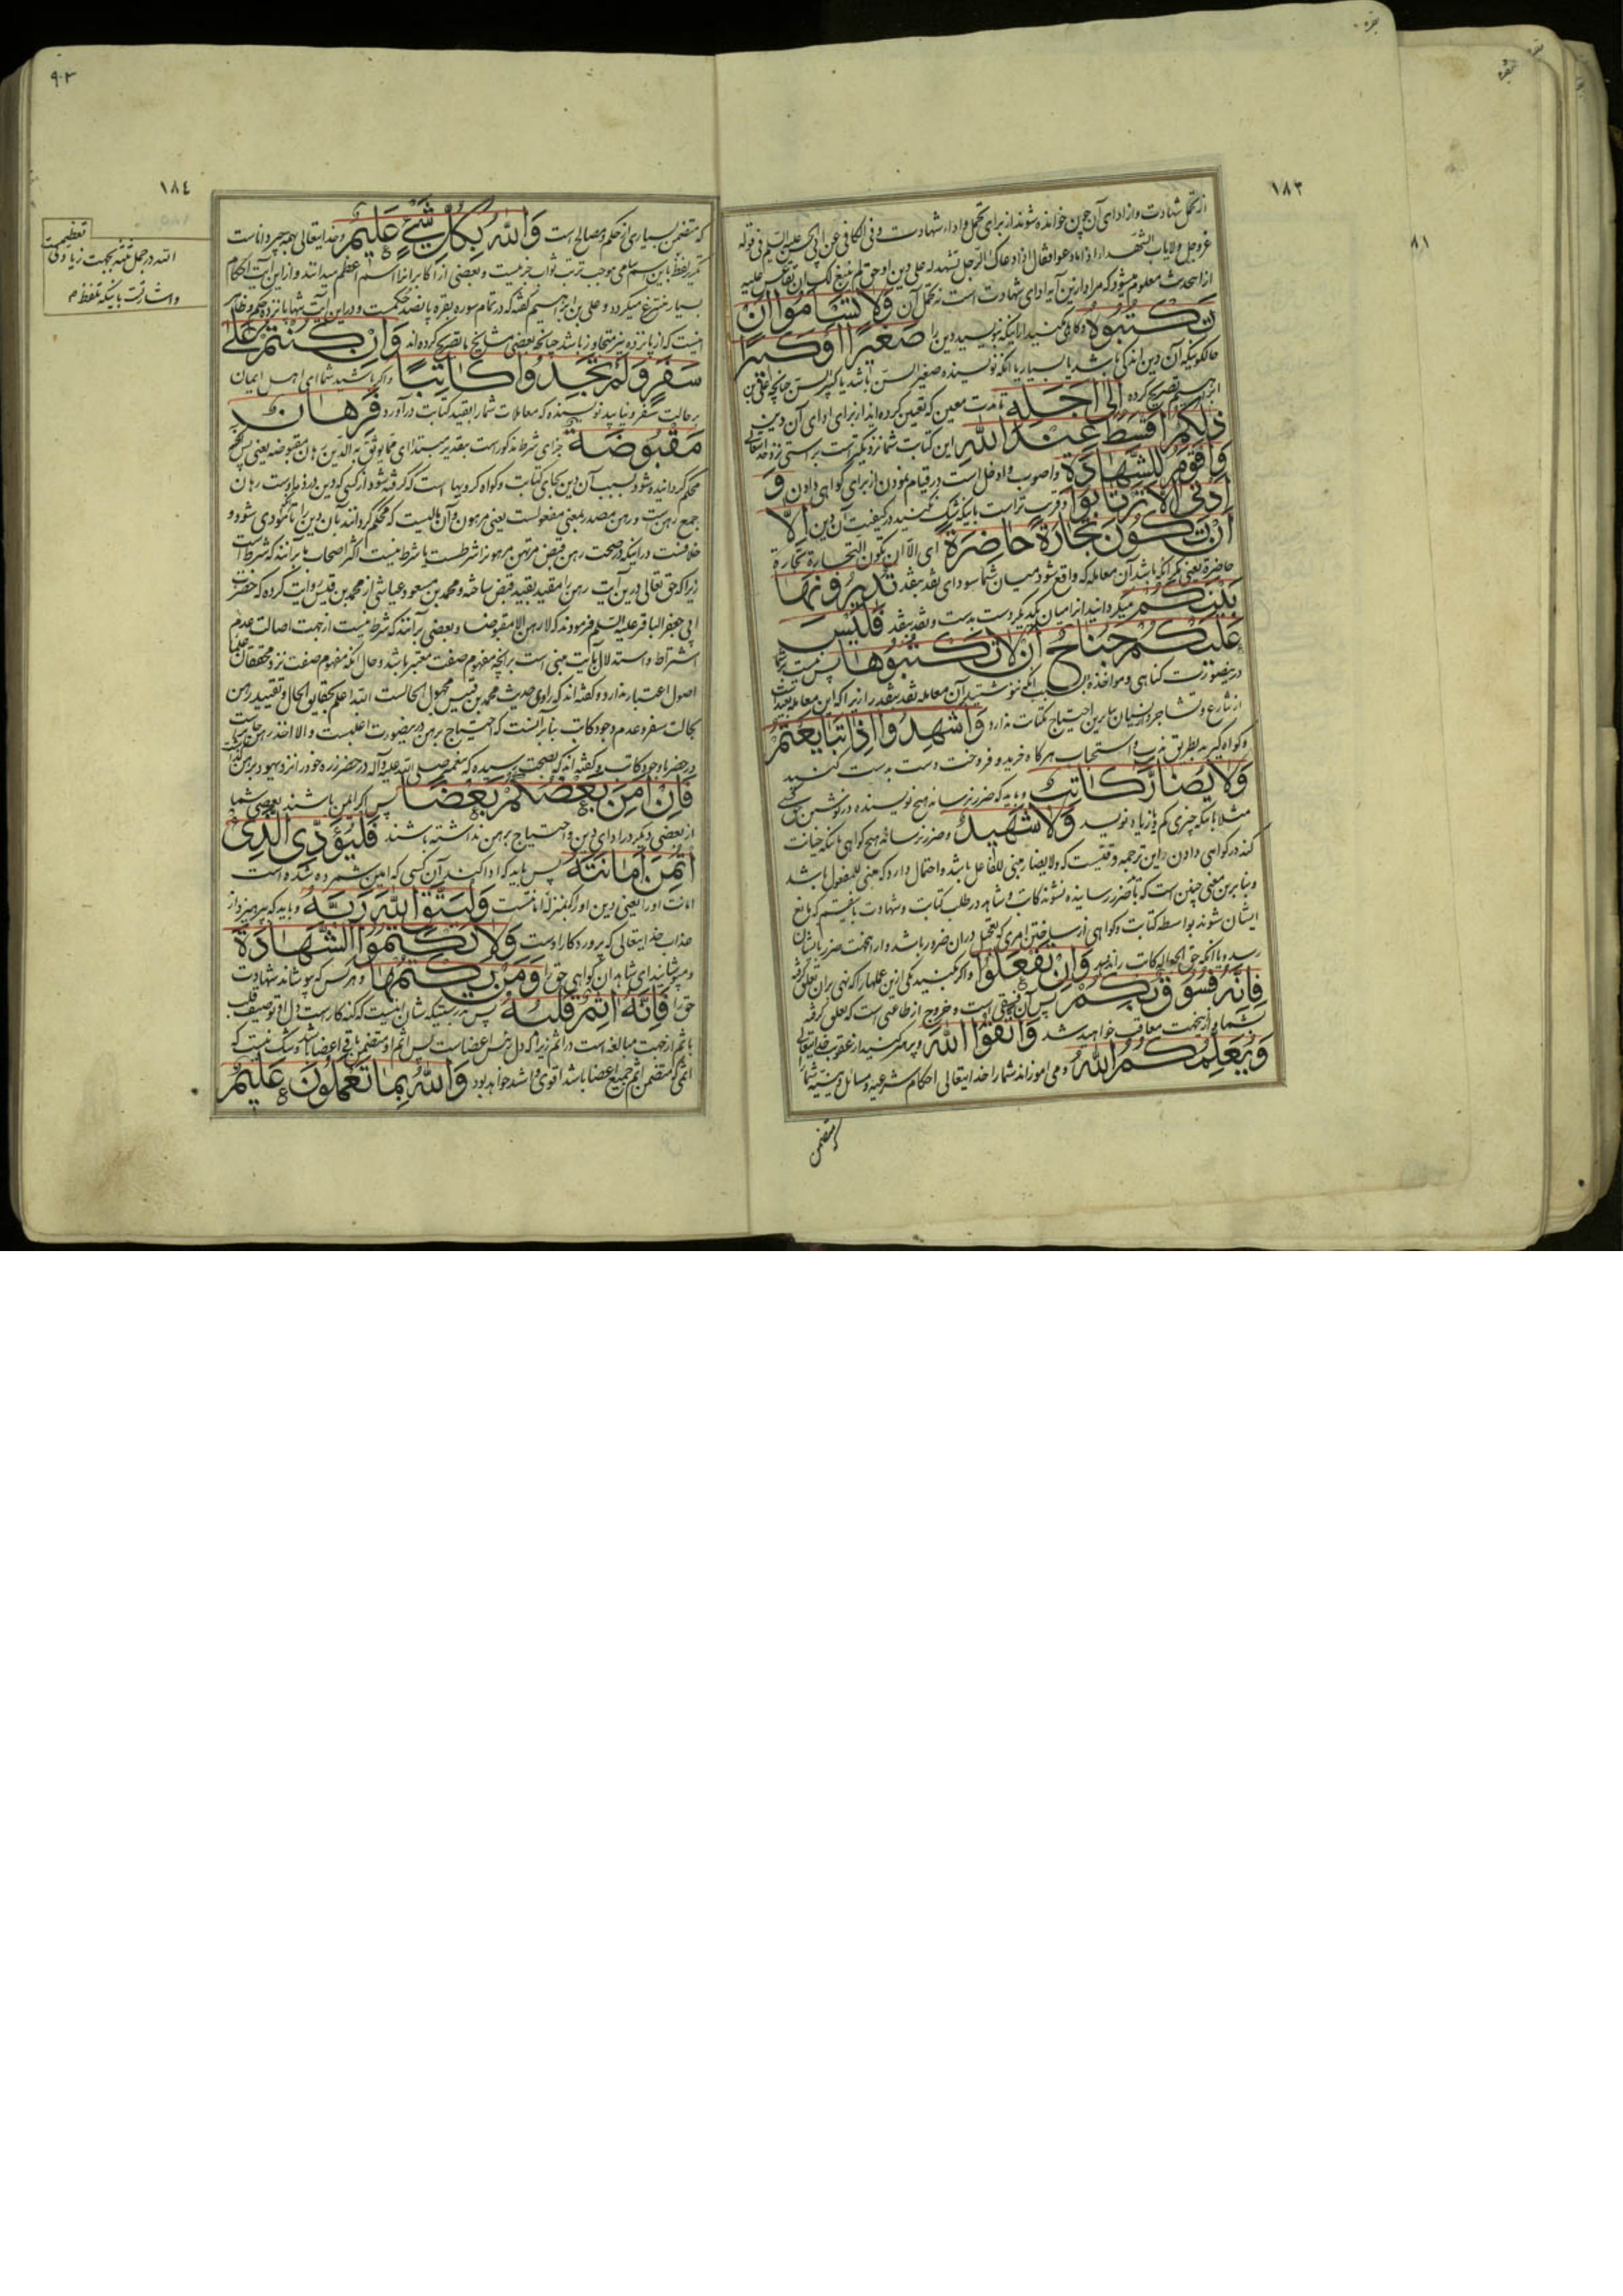 بقره
١٨٣
٨١
از تحمل شهادت و از ادای آن چون خوانده شوند از برای تحمل و اداء شهادت و فی الکافی عن ابی علیه السلم فی قوله
عز و جل ولا یاب الشهداء اذا ما دعوا فقال اذا دعاک الرجل تشهد له علی دین او حق لم ینبغ لک ان تقاعس علیه
از این حدیث معلوم میشود که مراد ازین آیه ادای شهادت است نه تحمل آن وَلا تَسْأَمُوا أَنْ
تَكْتُبُوهُ و کاهلی مکنید از اینکه بنویسید دین را صَغِيرًا أَوْ كَبِيرًا
حالکونیکه آن دین اندکی باشد یا بسیار یا آنکه نویسنده صغیر السن باشد یا کبیر السن چنانچه علی بن
ابرهیم تصریح کرده إِلى أَجَلِهِ تا مدت معین که تعیین کرده‌اند از برای ادای آن دین
ذلِكُمْ أَقْسَطُ عِنْدَ اللَّهِ این کتابت شما نزدیکتر است براستی نزد خدایتعالی
وَأَقْوَمُ لِلشَّهادَةِ و اصوب و ادخل است در قیام نمودن از برای گواهی دادن وَ
أَدْنى أَلَّا تَرْتابُوا و قریب تر است باینکه شک نکنید در کیفیت آن دین إِلَّا
أَنْ تَكُونَ تِجارَةً حاضِرَةً ای الا ان یکون التجارة تجارة
حاضرة یعنی مگر آنکه باشد آن معامله که واقع شود میان شما سودای نقد بنقد تُدِيرُونَها
بَيْنَكُمْ میگردانید آنرا میان یکدیگر دست بدست و نقد بنقد فَلَيْسَ
عَلَيْكُمْ جُناحٌ أَنْ لا تَكْتُبُوها پس نیست بر شما
درینصورت گناهی و مواخذه بسبب آنکه ننوشتید آن معامله نقد بنقد را زیرا که این معامله بعید است
از تنازع و تشاجر در میان بنابرین احتیاج بکتابت ندارد وَأَشْهِدُوا إِذا تَبايَعْتُمْ
و گواه گیرید بطریق ندب و استحباب هرگاه خرید و فروخت دست بدست کنید
وَلا يُضَارَّ كاتِبٌ و باید که ضرر نرساند هیچ نویسنده در نوشتن
مثلا باینکه چیزی کم یا زیاده نویسد وَلا شَهِيدٌ و ضرر نرساند هیچ گواهی باینکه خیانت
کند در گواهی دادن و این ترجمه وقتیست که ولا یضار مبنی للفاعل باشد و احتمال دارد که مبنی للمفعول باشد
و بنابرین معنی چنین است که باید ضرر رسانیده نشوند کاتب و شاهد در طلب کتابت و شهادت باین قسم که مانع
ایشان شوند بواسطه کتابت و گواهی از ساختن امری که تحمل در آن ضرور باشد و از اینجهت ضرر بایشان
رسد و یا آنکه حق الجعاله کاتب را ندهید وَإِنْ تَفْعَلُوا و اگر بکنید یکی ازین عملها را که نهی بر آن تعلق گرفته
فَإِنَّهُ فُسُوقٌ بِكُمْ پس آن فسقی است و خروج از طاعتی است که تعلق گرفته
بشما و از اینجهت معاقب خواهید شد وَاتَّقُوا اللَّهَ و پرهیز کنید از عقوبت خدایتعالی
وَيُعَلِّمُكُمُ اللَّهُ و می‌آموزاند شما را خدایتعالی احکام شرعیه و مسائل دینیه شما را
که متضمن
٩٠٢
١٨٤
که متضمن بسیاری از حکم و مصالح است وَاللَّهُ بِكُلِّ شَيْءٍ عَلِيمٌ و خدایتعالی بهمه چیز داناست
تکریر لفظ باین اسم سامی موجب ترتب ثواب خیریت و بعضی از اکابر آنرا اسم اعظم میدانند و از این آیت احکام
بسیار متنوع میگردد و علی بن ابرهیم گفته که در تمام سوره بقره پانصد حکمست و در این آیت تنها پانزده حکم و ظاهر
اینست که از پانزده نیز متجاوز باشد چنانچه بعضی مشایخ ما تصریح کرده‌اند وَإِنْ كُنْتُمْ عَلى
سَفَرٍ وَلَمْ تَجِدُوا كاتِبًا و اگر باشید شما ای اهل ایمان
بر حالت سفر و نیابید نویسنده که معاملات شما را بقید کتابت درآورد فَرِهانٌ
مَقْبُوضَةٌ جزای شرط مذکور است بتقدیر مبتدا ای فما یوثق به الدین رهان مقبوضه یعنی پس آنچه
محکم گردانیده شود بسبب آن دین بجای کتابت و گواه گروی‌ها است که گرفته شود از کسی که دین در ذمه اوست رهان
جمع رهن است و رهن مصدر بمعنی مفعولست یعنی مرهون و آن مالیست که محکم گردانند بآن دین را تا آنکه مودی شود و
خلافست در اینکه در صحت رهن قبض مرتهن مرهون را شرطست یا شرط نیست اکثر اصحاب ما برآنند که شرط است
زیرا که حق تعالی درین آیت رهن را مقید بقید قبض ساخته و محمد بن مسعود عیاشی از محمد بن قیس روایت کرده که حضرت
ابی جعفر الباقر علیه السلم فرمودند که لا رهن الا مقبوضا و بعضی برآنند که شرط نیست از جهت اصالت عدم
اشتراط و استدلال بآیت مبنی است بر آنچه مفهوم صفت معتبر باشد و حال آنکه مفهوم صفت نزد محققان علماء
اصول اعتبار ندارد و گفته‌اند که راوی حدیث محمد بن قیس مجهول الحالست الله اعلم بحقایق الحال و تقیید رهن
بحالت سفر و عدم وجود کاتب بنابر آنست که احتیاج برهن درینصورت اغلبست و الا اخذ رهن جایز است
در حضر با وجود کاتب و گفته‌اند که بصحت رسیده که پیغمبر صلی الله علیه و آله در حضر زره خود را نزد یهود برهن گذاشت
فَإِنْ أَمِنَ بَعْضُكُمْ بَعْضًا پس اگر ایمن باشند بعضی شما
از بعضی دیگر در ادای دین و احتیاج برهن نداشته باشند فَلْيُؤَدِّ الَّذِي
اؤْتُمِنَ أَمانَتَهُ پس باید که ادا کند آن کسی که امین شمرده شده است
امانت او را یعنی دین او را که بمنزله امانتست وَلْيَتَّقِ اللَّهَ رَبَّهُ و باید که بپرهیزد از
عذاب خدایتعالی که پروردگار اوست وَلا تَكْتُمُوا الشَّهادَةَ
و مپوشانید ای شاهدان گواهی حق را وَمَنْ يَكْتُمْها و هر کس که بپوشاند شهادت
حق را فَإِنَّهُ آثِمٌ قَلْبُهُ پس بدرستیکه شان اینست که گنه کار است دل او توصیف قلب
باثم از جهت مبالغه است در اثم زیرا که دل رئیس اعضاست پس اثم او متضمن باقی اعضا باشد و شک نیست که
اثمی که متضمن اثم جمیع اعضا باشد اقوی و اشد خواهد بود وَاللَّهُ بِما تَعْمَلُونَ عَلِيمٌ
تعظیمست
الله در جمل ثلثه بجهت زیادتی
و اشارتست باینکه تلفظ